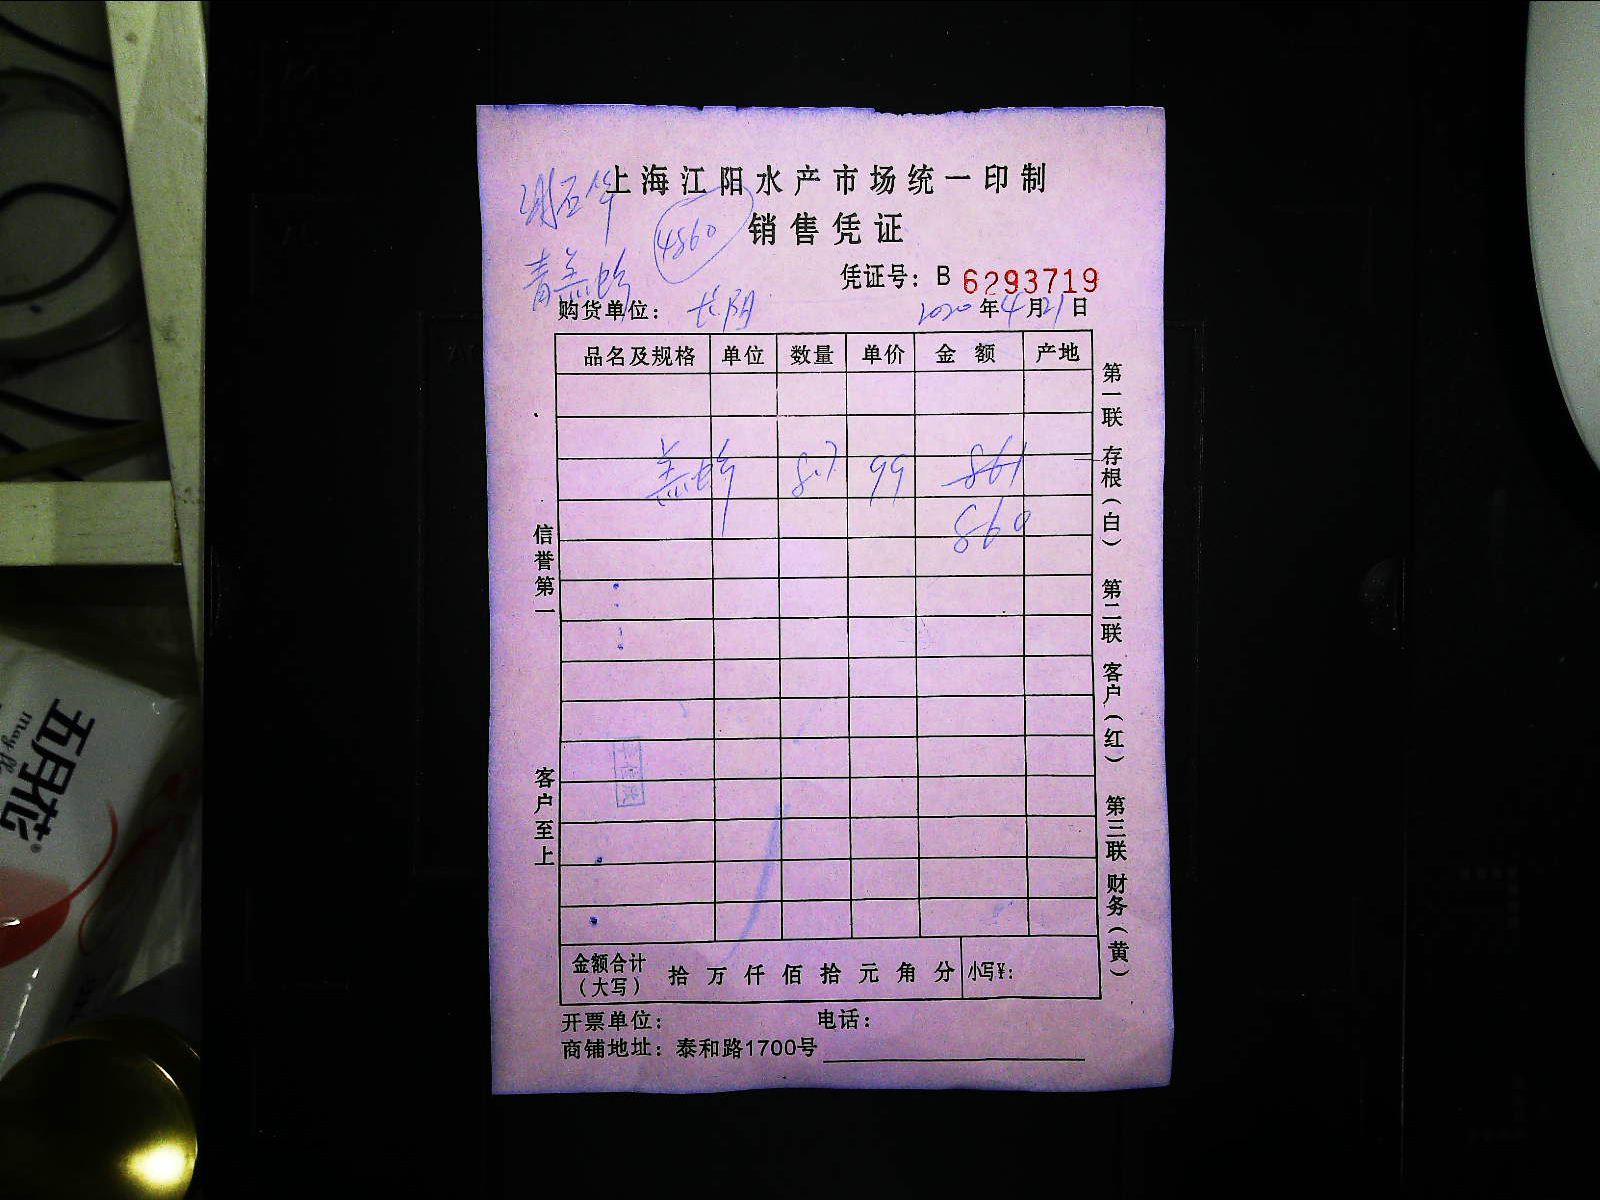 上海江阳水产市场统一印制
销售凭证
4860
青羔虾
凭证号：B 6293719
购货单位：长阴
2020年4月21日
品名及规格 单位 数量 单价 金额 产地
羔虾 8.7 99 861
860
信誉第一
客户至上
第一联 存根（白） 第二联 客户（红） 第三联 财务（黄）
金额合计（大写） 拾 万 仟 佰 拾 元 角 分 小写¥：
开票单位： 电话：
商铺地址：泰和路1700号
五月花®